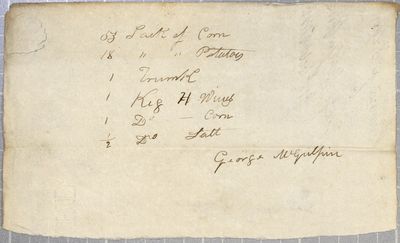 Sack of Corn
18 " " Potatoes
1 Trunk
1 Keg H Wines
1 Do — Corn
1/2 Do Salt
George McGulpin